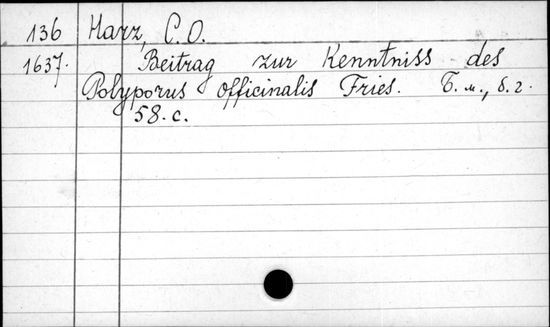 136 Harz, C.O.
1637. Beitrag zur Kenntniss des
Polyporus officinalis Fries. Б.м., б.г.
58.с.